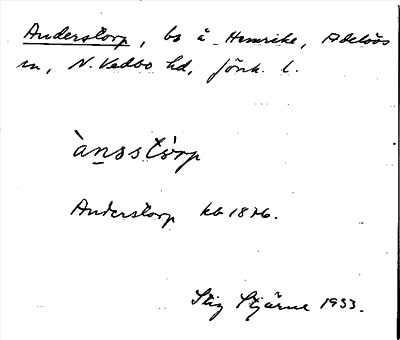 Anderstorp, bs å Henrike, Adelövs
sn, N. Vedbo hd, Jönk. l.
àn̲a̲stòrp
Anderstorp kb 1876.
Stig Stjärne 1933.